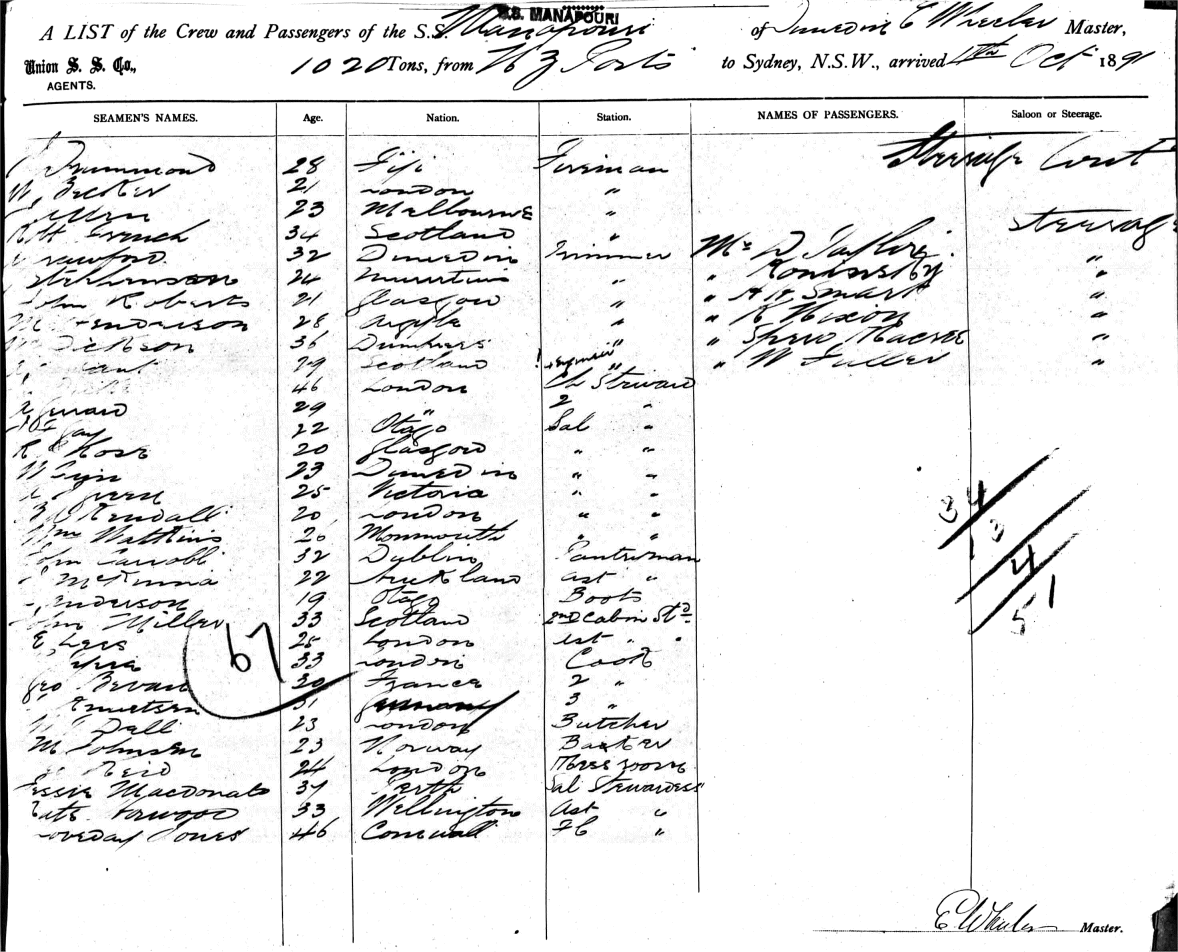 S.S. MANAPOURI
A LIST of the Crew and Passengers of the S.S. Manapouri of Dunedin E Wheeler Master,
Union S. S. Co., 1020 Tons, from N Z Ports to Sydney, N.S.W., arrived 17th Oct 1891
AGENTS.
SEAMEN'S NAMES. Age. Nation. Station. NAMES OF PASSENGERS. Saloon or Steerage.
Steerage Cont
Drummond 28 Fiji Fireman
W. Becker 21 London "
23 Melbourne "
Steerage
French 34 Scotland "
Crawford 32 Dunedin Trimmer Mr D Taylor "
Stephenson 24 Mauritius " " "
John Roberts 21 Glasgow " " Smart "
M Hendrison 28 Argyle " " R Nixon "
Dickson 36 Dumfries " " Spiro Macree "
29 Scotland " " W Fuller "
46 London Ch Steward
29 " 2 "
Gay 22 Otago Sal "
R Rose 20 Glasgow " "
W 23 Dunedin " "
Green 25 Victoria " "
Kendall 20 London " "
Wm Watkins 20 Monmouth " "
John Carroll 32 Dublin Pantryman
McKenna 22 Auckland ast "
Anderson 19 Otago Boots
John Miller 33 Scotland 2nd Cabin Std
E Lees 25 London ast " "
33 London Cook
Geo Bevan 30 France 2 "
Knudsen 31 Germany 3 "
Dall 23 London Butcher
M Johnsen 23 Norway Baker
Reid 24 London Mess room
Jessie Macdonald 37 Perth Sal Stewardess
Kate 33 Wellington Ast "
Loveday Jones 46 Cornwall FC "
67
34
13
4
51
E Wheeler Master.